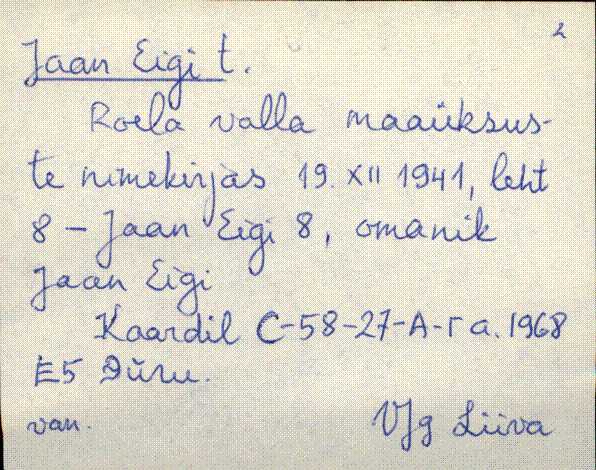 2
Jaan Eigi t.
Roela valla maaüksus-
te nimekirjas 19. XII 1941, leht
8 – Jaan Eigi 8, omanik
Jaan Eigi
Kaardil C-58-27-A-г a. 1968
E5
van. VJg Liiva